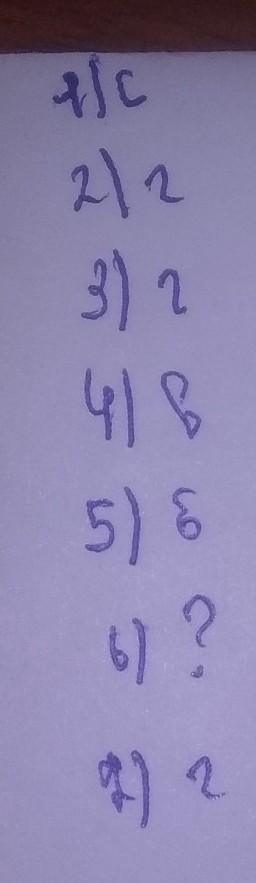 1) с
2) г
3) г
4) в
5) б
6) ?
7) г